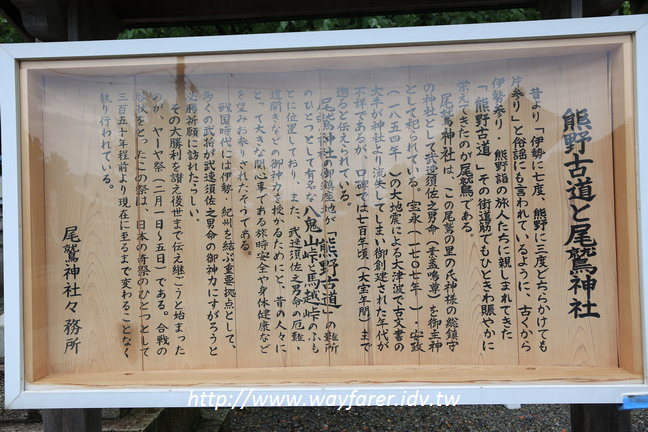 熊野古道と尾鷲神社
昔より「伊勢に七度、熊野に三度どちらかけても
片参り」と俗謡にも言われているように、古くから
伊勢参り・熊野詣の旅人たちに親しまれてきた
「熊野古道」その街道筋でもひときわ賑やかに
栄えてきたのが尾鷲である。
尾鷲神社は、この尾鷲の里の氏神様の総鎮守
の神社として武速須佐之男命（素盞鳴尊）を御主神
として祀られている。宝永（一七〇七年）・安政
（一八五四年）の大地震による大津波で古文書の
大半が神社より流失してしまい御創建された年代が
不祥であるが、口碑では千七百年頃（大宝年間）まで
遡ると伝えられている。
尾鷲神社の御鎮座地が「熊野古道」の難所
のひとつとして有名な八鬼山峠と馬越峠のふも
とに位置しており、また、武速須佐之男命の厄難、
道開きなどの御神力を授かるためにと、昔の人々に
とって大きな関心事である旅時安全や身体健康など
を望みお参りされたそうである。
戦国時代には伊勢・紀州を結ぶ重要拠点として、
多くの武将が武速須佐之男命の御神力にすがろうと
必勝祈願に訪れたらしい。
その大勝利を讃え後世まで伝え継ごうと始まった
のが、ヤーヤ祭（二月一日〜五日）である。合戦の
形状をとったこの祭は、日本の奇祭のひとつとして
三百五十年程前より現在に至るまで変わることなく
執り行われている。
尾鷲神社々務所
http://www.wayfarer.idv.tw